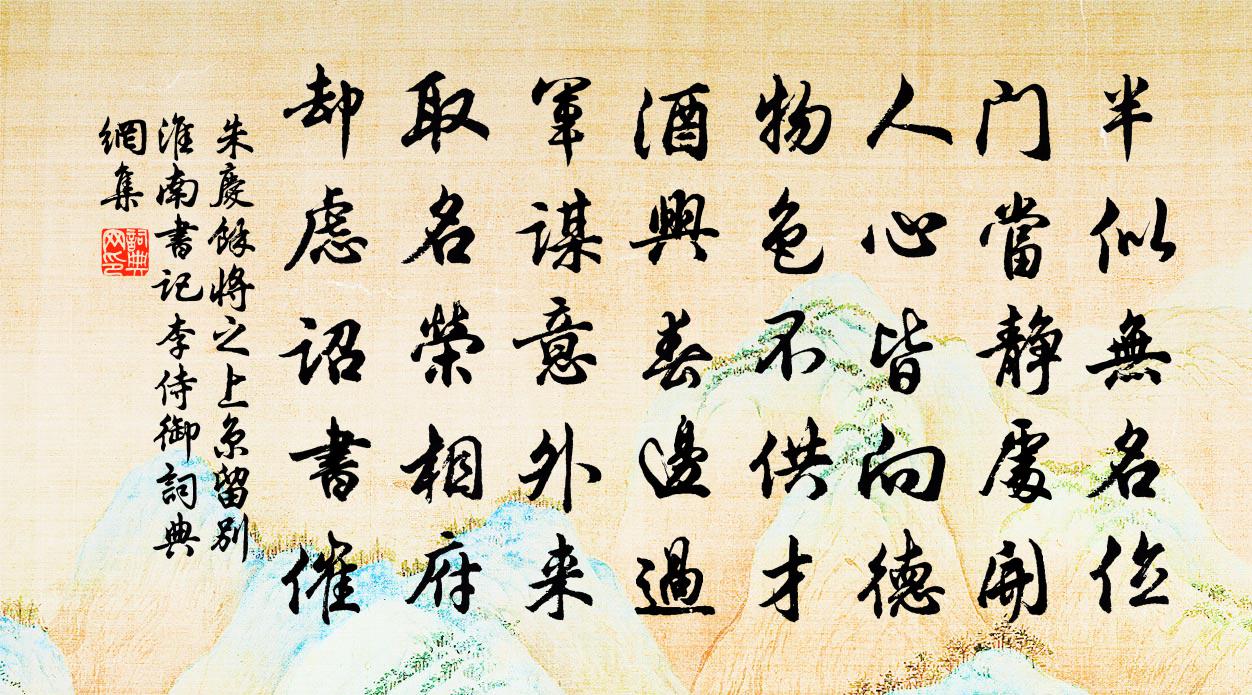 半似無名位
门當静處開
人心皆向德
物色不供才
酒興春邊過
軍謀意外来
取名榮相府
却慮詔書催
朱慶餘將之上京留别
淮南書記李侍御詞典
網集
詞典
网印